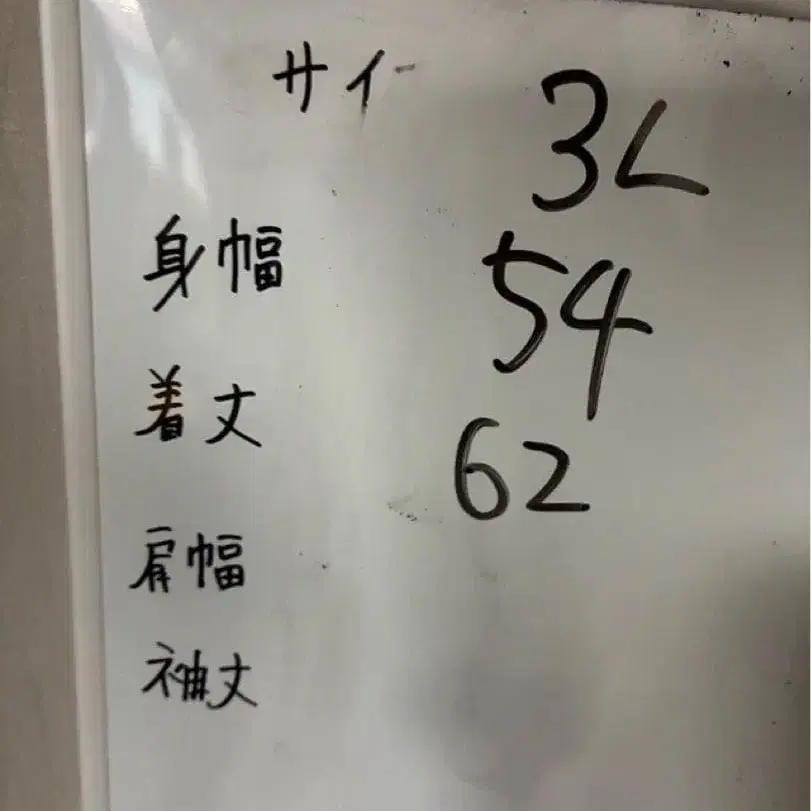 サイ 3L
身幅 54
着丈 62
肩幅
袖丈